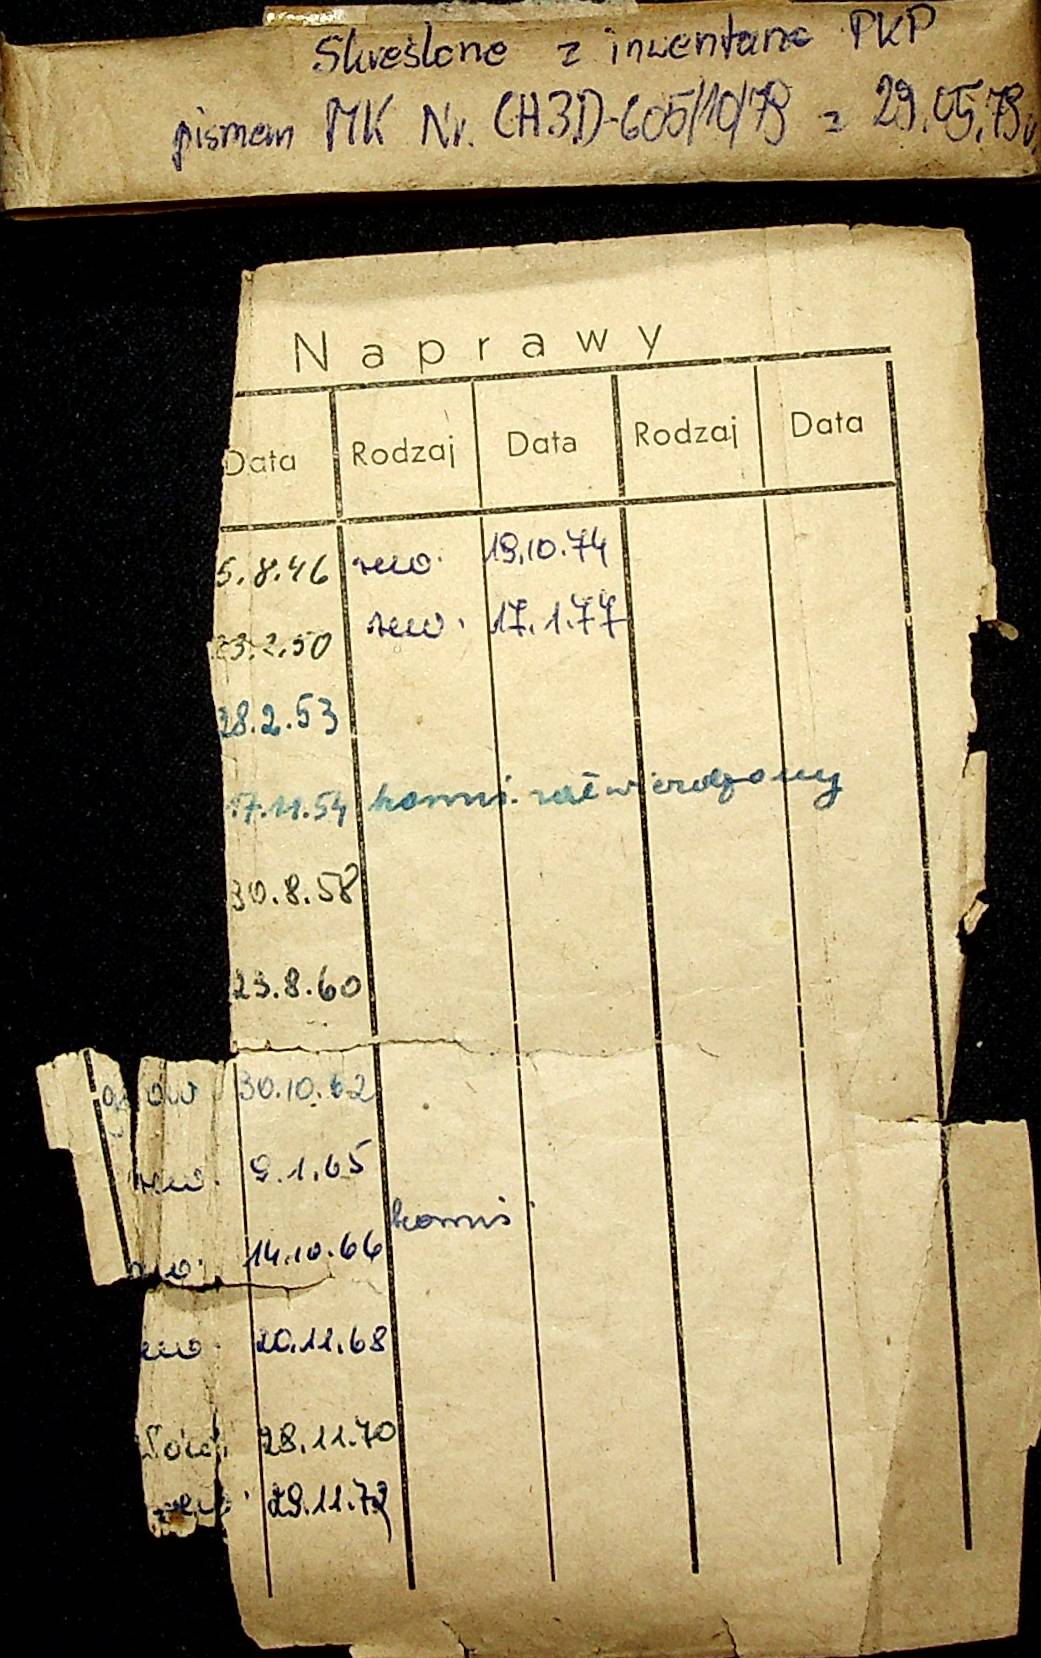 Skreślone z inwentarza PKP
pismem MK Nr. CH3D-605/10/79 z 29.05.79
Naprawy
Data Rodzaj Data Rodzaj Data
5.8.46 rew. 19.10.74
23.2.50 rew. 17.1.77
28.2.53
17.11.54 komis. zatwierdzony
30.8.58
23.8.60
30.10.62
rew. 9.1.65
komis
14.10.66
rew. 20.11.68
28.11.70
29.11.72